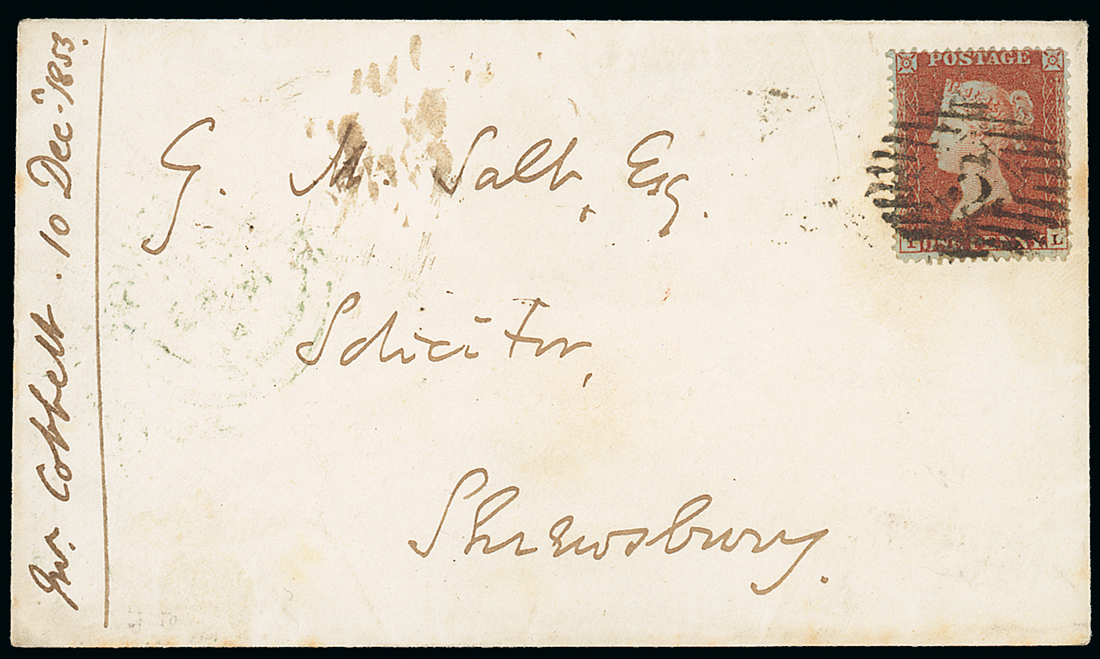 Jno. Cobbett. 10 Decr. 1853.
G. M. Salt, Esq.
Solicitor,
Shrewsbury.
POSTAGE
ONE PENNY
L